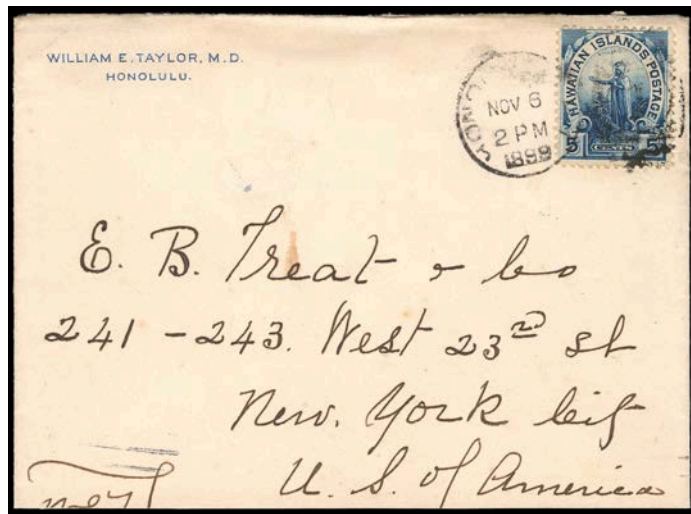 WILLIAM E. TAYLOR, M.D.
HONOLULU.
NOV 6
2 PM
1899
HAWAIIAN ISLANDS POSTAGE
5 CENTS 5
E. B. Treat & Co
241 - 243. West 23rd st
New. York City
U. S. of America